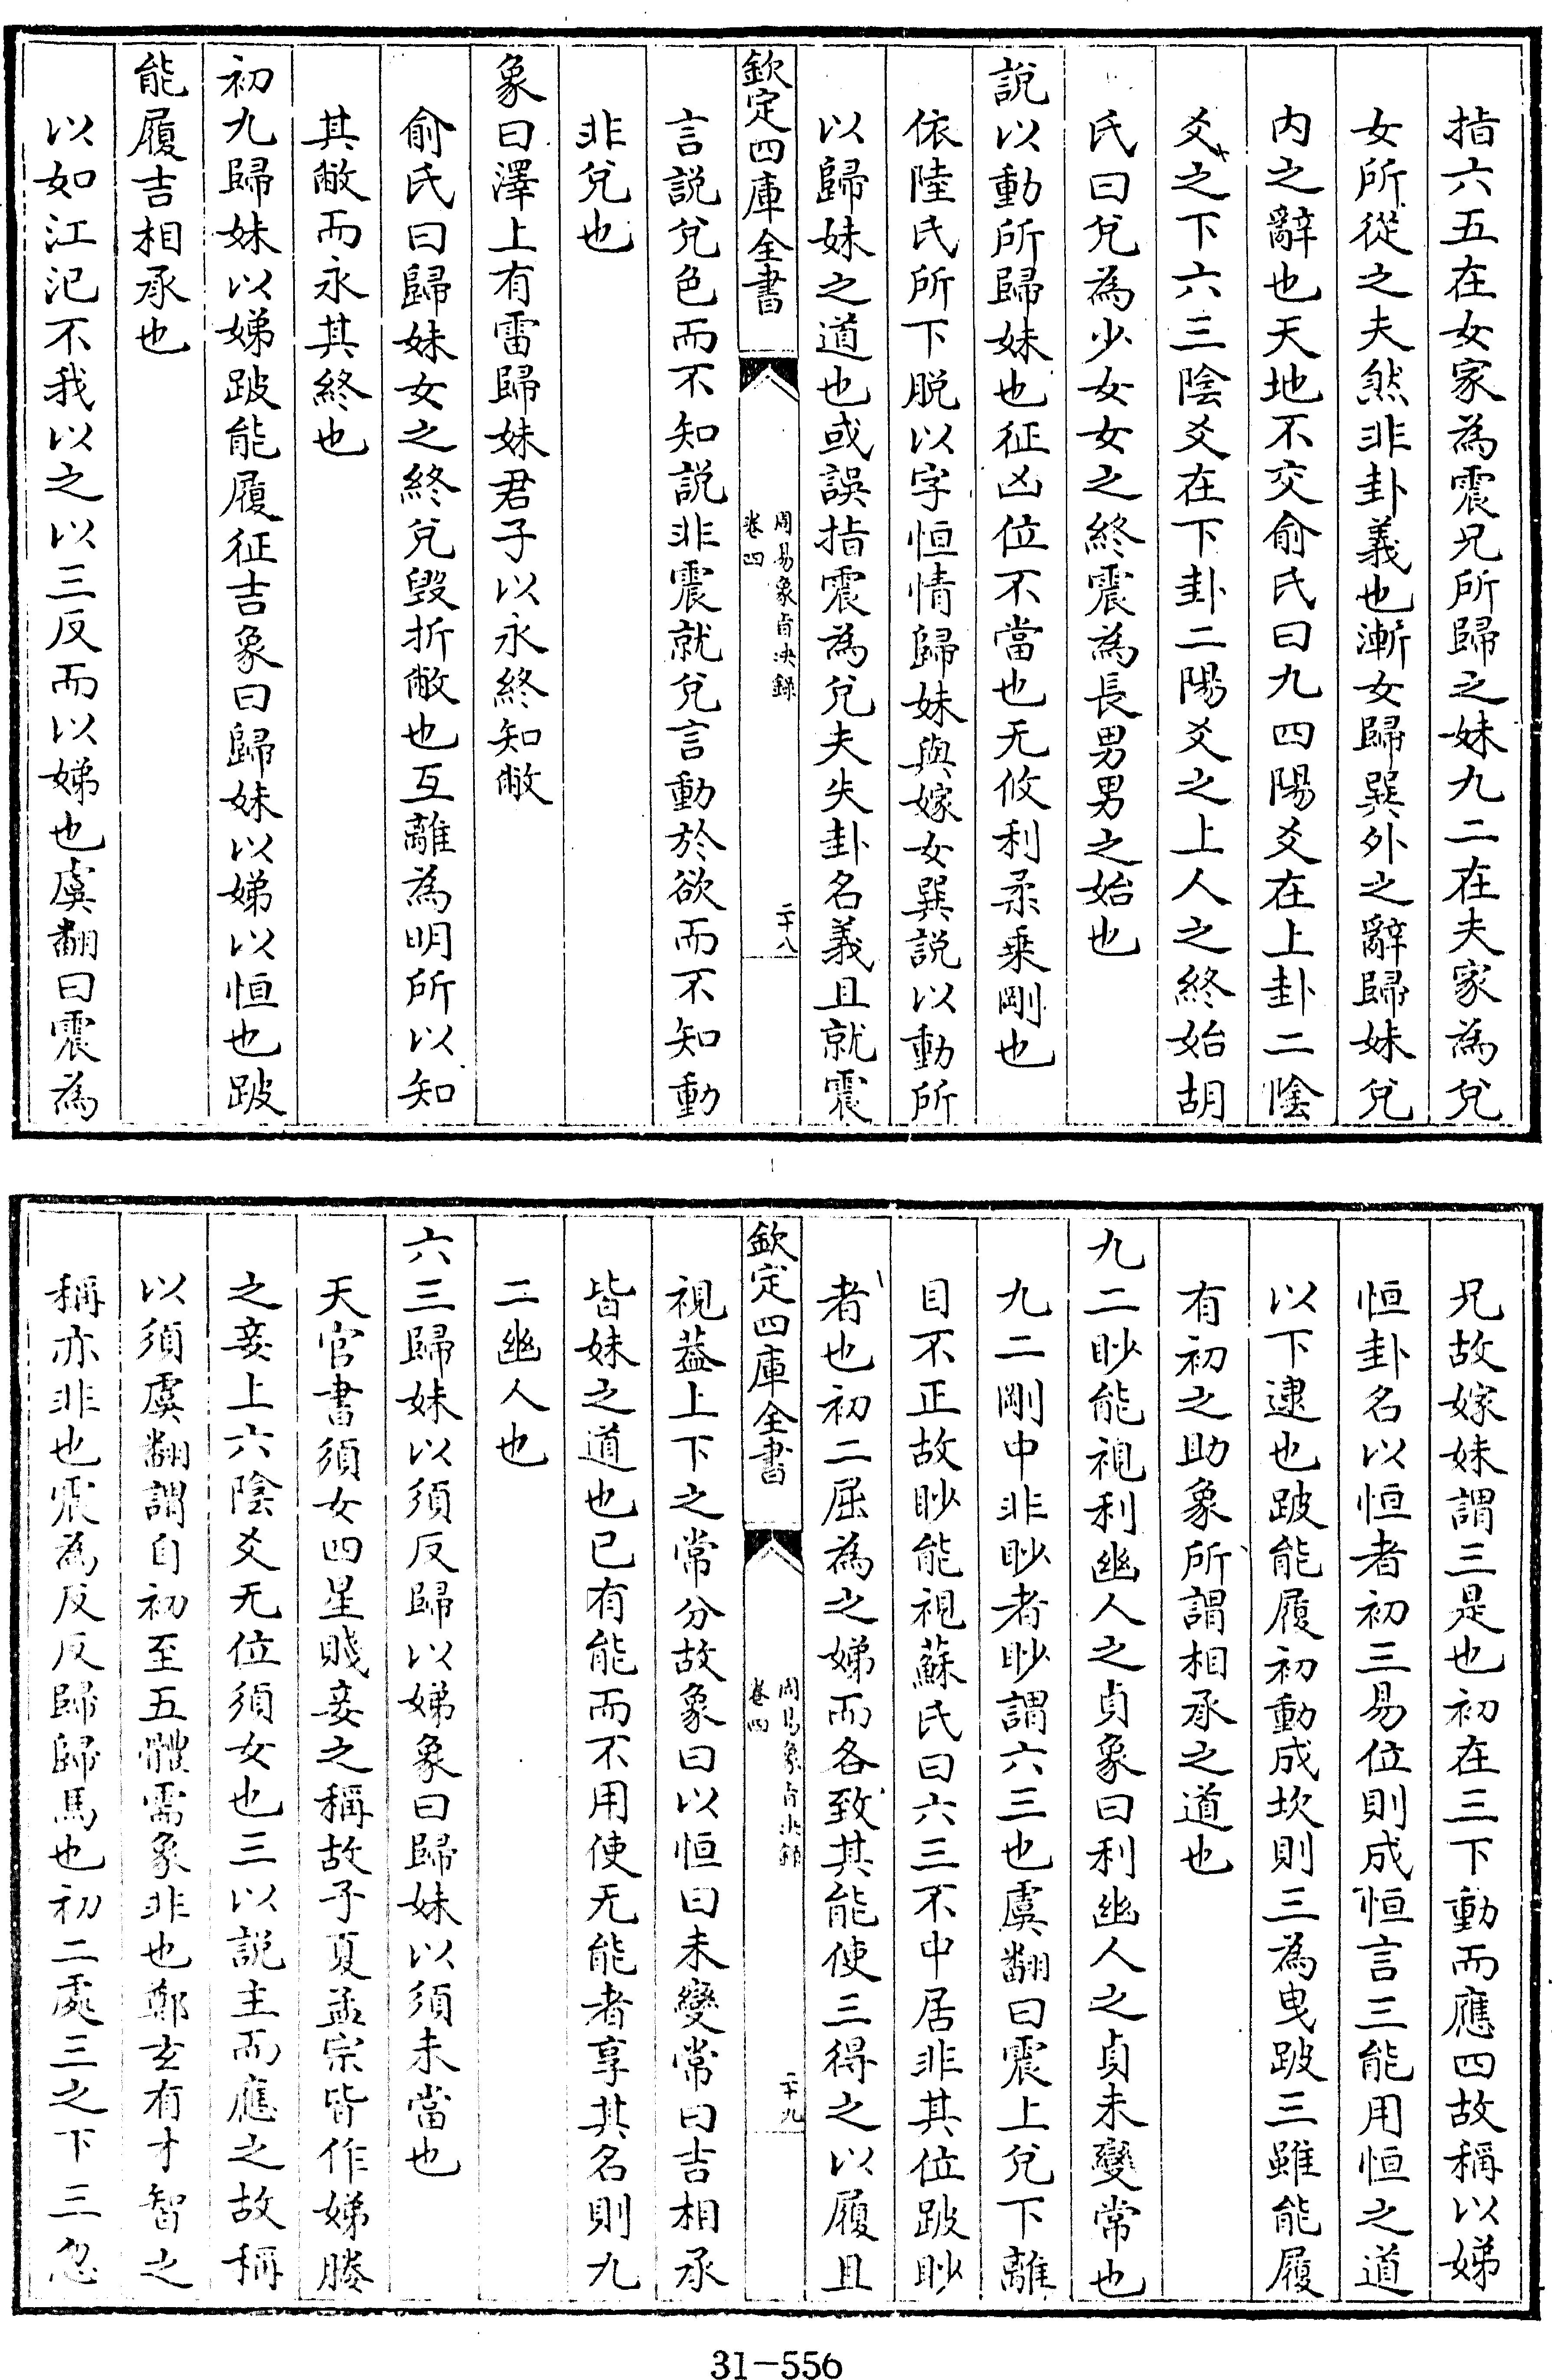 指六五在女家為震兄所歸之妹九二在夫家為兌
女所從之夫然非卦義也漸女歸巽外之辭歸妹兌
内之辭也天地不交俞氏曰九四陽爻在上卦二陰
爻之下六三陰爻在下卦二陽爻之上人之終始胡
氏曰兌為少女女之終震為長男男之始也
說以動所歸妹也征凶位不當也无攸利柔乗剛也
依陸氏所下脱以字恒情歸妹與嫁女巽説以動所
以歸妹之道也或誤指震為兌夫失卦名義且就震
欽定四庫全書
周易象旨決録
卷四
二十八
言説兌色而不知説非震就兌言動於欲而不知動
非兌也
象曰澤上有雷歸妹君子以永終知敝
俞氏曰歸妹女之終兌毀折敝也互離為明所以知
其敝而永其終也
初九歸妹以娣跛能履征吉象曰歸妹以娣以恒也跛
能履吉相承也
以如江汜不我以之以三反而以娣也虞翻曰震為
兄故嫁妹謂三是也初在三下動而應四故稱以娣
恒卦名以恒者初三易位則成恒言三能用恒之道
以下逮也跛能履初動成坎則三為曳跛三雖能履
有初之助象所謂相承之道也
九二眇能視利幽人之貞象曰利幽人之貞未變常也
九二剛中非眇者眇謂六三也虞翻曰震上兌下離
目不正故眇能視蘇氏曰六三不中居非其位跛眇
者也初二屈為之娣而各致其能使三得之以履且
欽定四庫全書
周易象旨決録
卷四
二十九
視葢上下之常分故象曰以恒曰未變常曰吉相承
皆妹之道也已有能而不用使无能者享其名則九
二幽人也
六三歸妹以須反歸以娣象曰歸妹以須未當也
天官書須女四星賤妾之稱故子夏孟宗皆作娣媵
之妾上六陰爻无位須女也三以説主而應之故稱
以須虞翻謂自初至五體需象非也鄭玄有才智之
稱亦非也震為反反歸歸馬也初二處三之下三忽
31-556